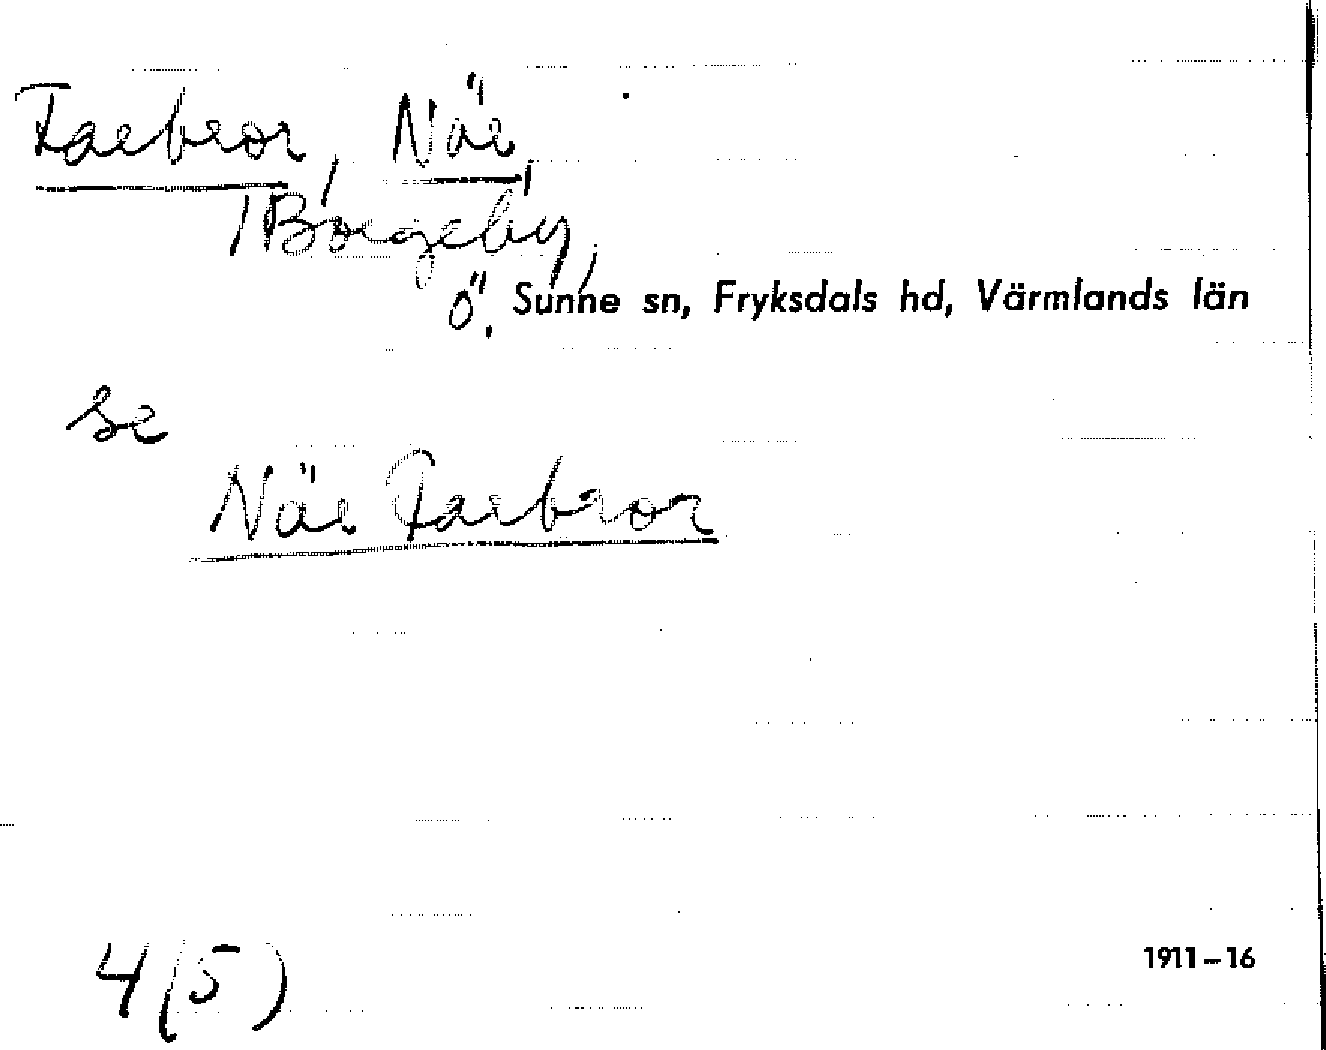 Farbror, När
i Borgeby,
Ö. Sunne sn, Fryksdals hd, Värmlands län
se
När Farbror
4(5)
1911-16